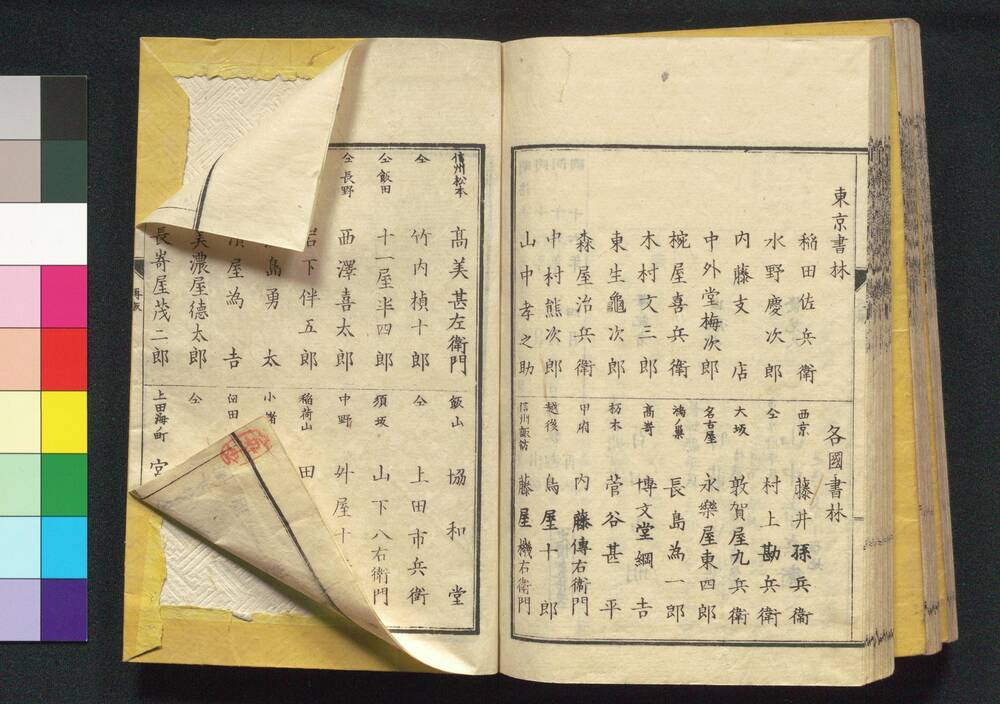 東京書林
稲田佐兵衛
水野慶次郎
内藤支店
中外堂梅次郎
椀屋喜兵衛
木村文三郎
東生龜次郎
森屋治兵衛
中村熊次郎
山中孝之助
各國書林
西京 藤井孫兵衛
仝 村上勘兵衛
大坂 敦賀屋九兵衛
名古屋 永樂屋東四郎
鴻ノ巣 長島為一郎
高嵜 博文堂綱吉
栃木 菅谷甚平
甲府 内藤傳右衛門
越後 鳥屋十郎
信州諏訪 藤屋機右衛門
信州松本 髙美甚左衛門
仝 竹内禎十郎
仝飯田 十一屋半四郎
仝長野 西澤喜太郎
岩下伴五郎
島勇太
屋為吉
美濃屋德太郎
長嵜屋茂二郎
飯山 協和堂
仝 上田市兵衛
須坂 山下八右衛門
中野 外屋十
稲荷山 田
小諸
田
仝
上田海町 宮